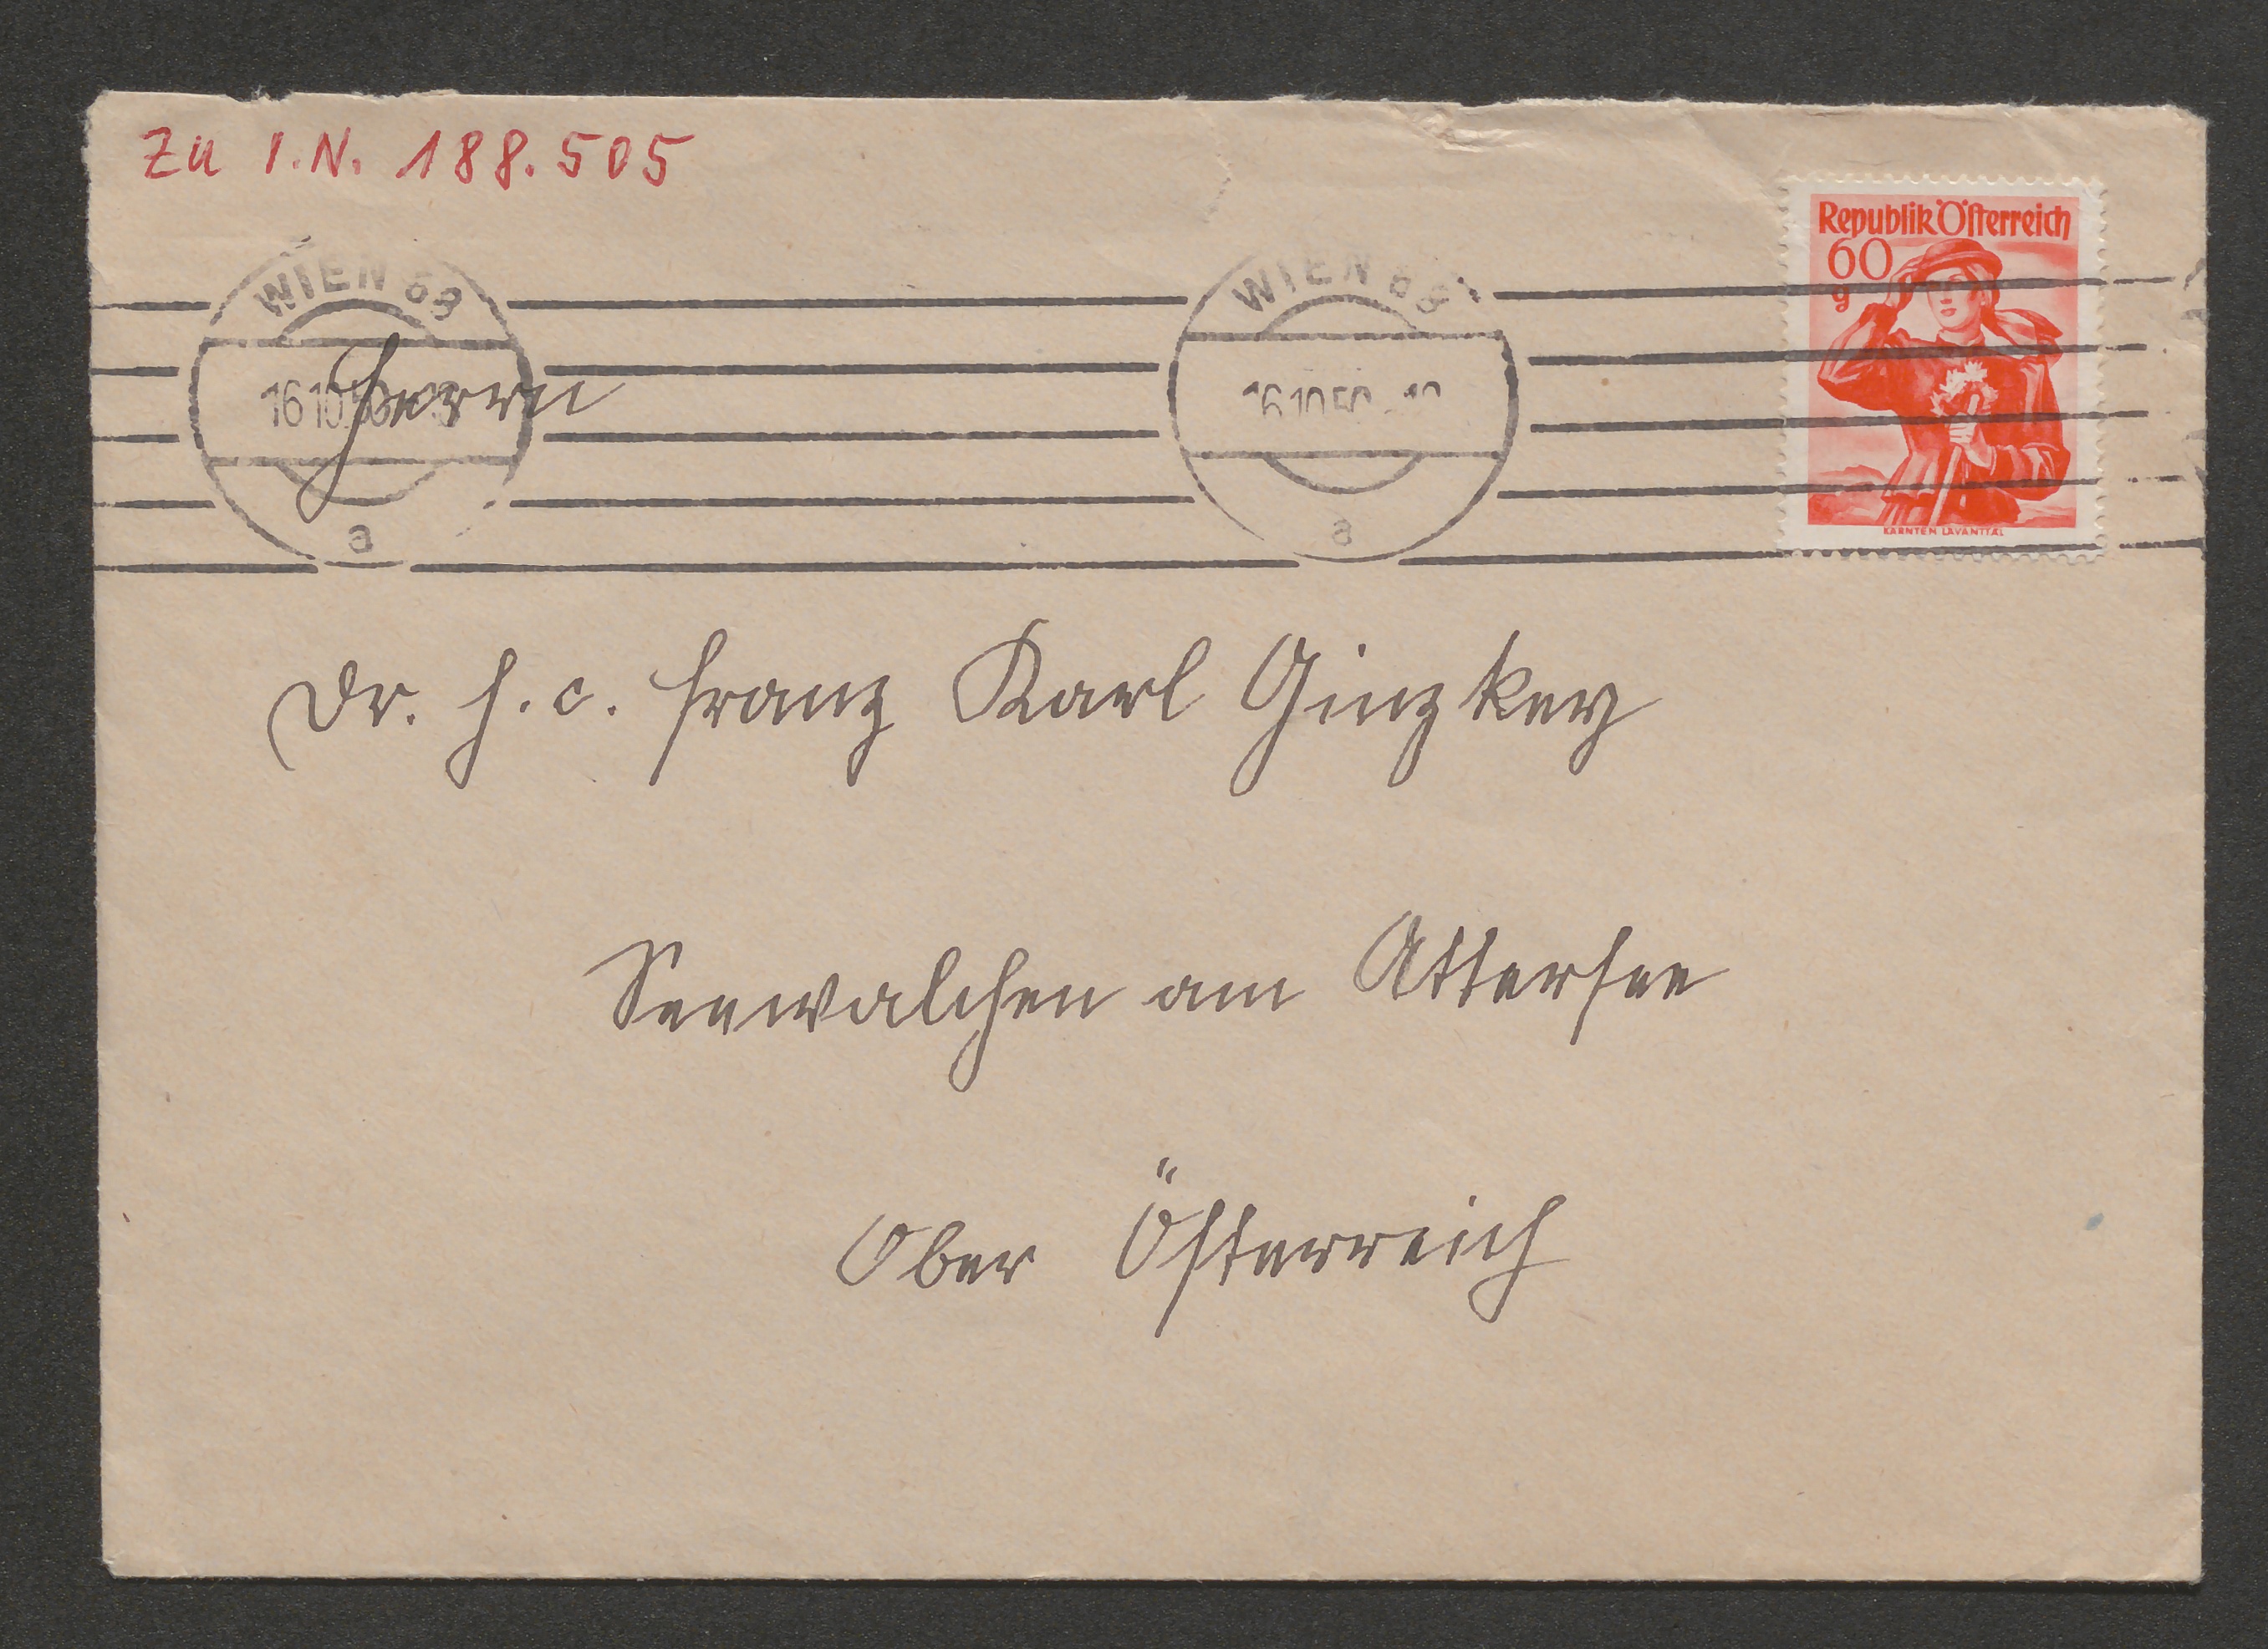 Zu I.N. 188.505
Republik Österreich
60
g
WIEN 68
WIEN 68
16.10.50
16.10.50
Herrn
a
a
KÄRNTEN LAVANTTAL
Dr. h. c. Franz Karl Ginzkey
Seewalchen am Attersee
Ober Österreich